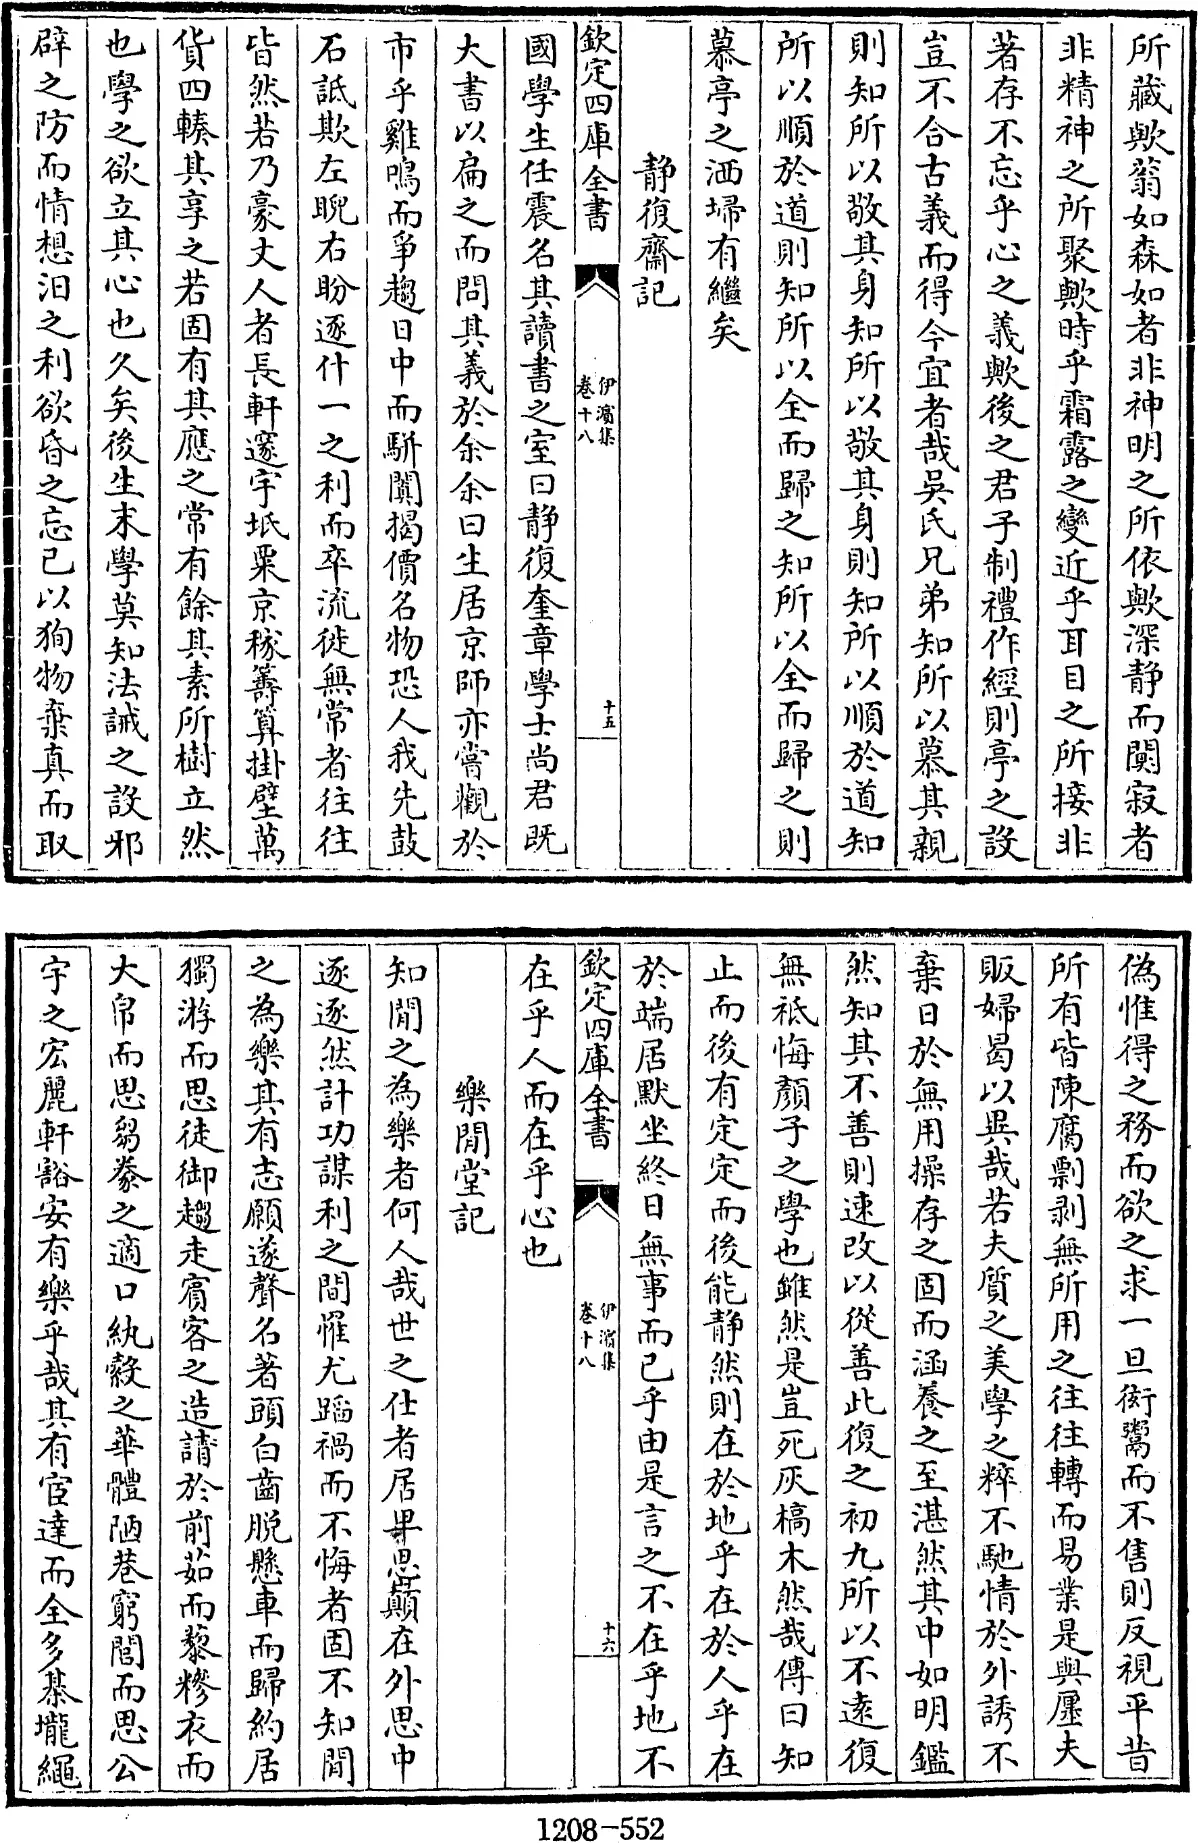 所藏歟蓊如森如者非神明之所依歟深静而闃寂者
非精神之所聚歟時乎霜露之變近乎耳目之所接非
著存不忘乎心之義歟後之君子制禮作經則亭之設
豈不合古義而得今宜者哉吳氏兄弟知所以慕其親
則知所以敬其身知所以敬其身則知所以順於道知
所以順於道則知所以全而歸之知所以全而歸之則
慕亭之洒埽有繼矣
静復齋記
欽定四庫全書
伊濱集
卷十八
十五
國學生任震名其讀書之室曰静復奎章學士尚君既
大書以扁之而問其義於余余曰生居京師亦嘗觀於
市乎雞鳴而爭趨日中而駢闐揭價名物恐人我先鼓
石詆欺左睨右盼逐什一之利而卒流徙無常者往往
皆然若乃豪丈人者長軒邃宇坻粟京稼籌算掛壁萬
貨四輳其享之若固有其應之常有餘其素所樹立然
也學之欲立其心也久矣後生末學莫知法誡之設邪
辟之防而情想汨之利欲昏之忘已以狥物棄真而取
偽惟得之務而欲之求一旦衒鬻而不售則反視平昔
所有皆陳腐剽剥無所用之往往轉而易業是與屠夫
販婦曷以異哉若夫質之美學之粹不馳情於外誘不
棄日於無用操存之固而涵養之至湛然其中如明鑑
然知其不善則速改以從善此復之初九所以不遠復
無祇悔顏子之學也雖然是豈死灰槁木然哉傳曰知
止而後有定定而後能静然則在於地乎在於人乎在
於端居默坐終日無事而已乎由是言之不在乎地不
欽定四庫全書
伊濱集
卷十八
十六
在乎人而在乎心也
樂閒堂記
知閒之為樂者何人哉世之仕者居畢思顛在外思中
逐逐然計功謀利之間罹尤蹈禍而不悔者固不知閒
之為樂其有志願遂聲名著頭白齒脫懸車而歸約居
獨游而思徒御趨走賓客之造請於前茹而藜糝衣而
大帛而思芻豢之適口紈縠之華體陋巷窮閻而思公
宇之宏麗軒豁安有樂乎哉其有宦達而全多墓壠繩
1208-552